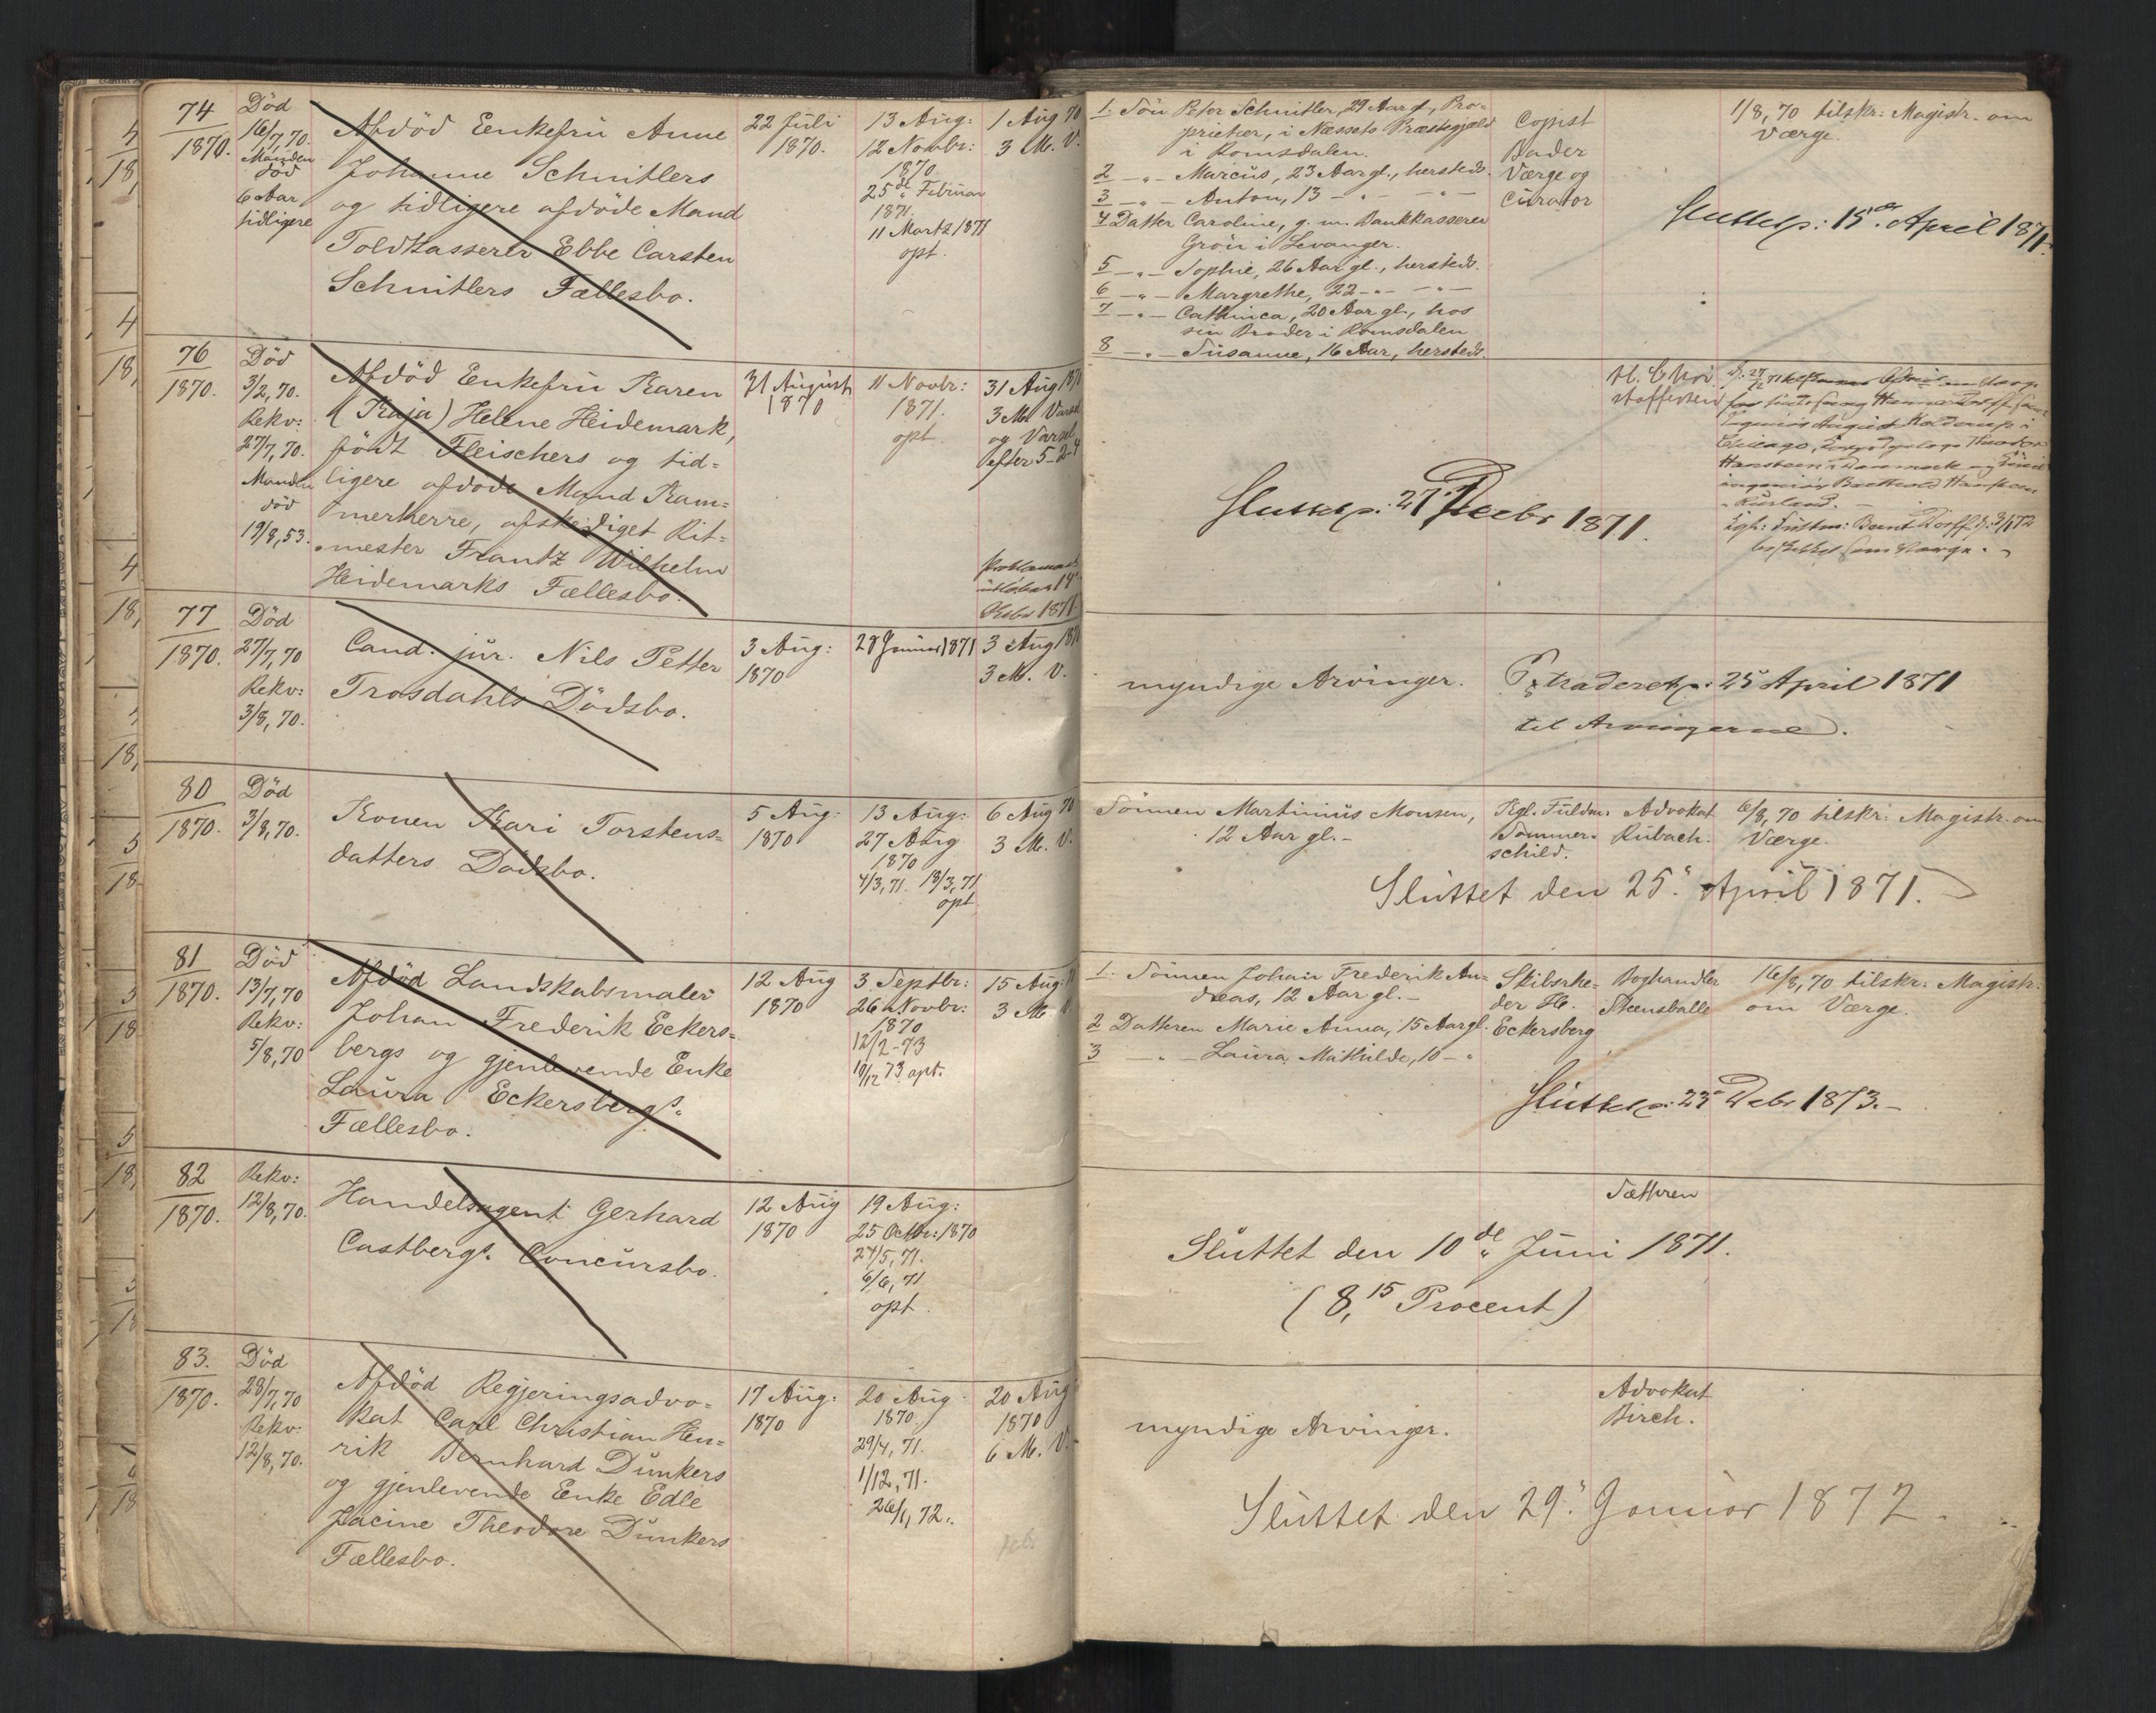 74
1870.
Død
16/7, 70.
Manden
død
6 Aar
tidligere
Afdød Enkefru Anne
Johanne Schnitlers
og tidligere afdøde Mand
Toldkasserer Ebbe Carsten
Schnitlers Fællesbo.
22 Juli
1870.
13 Aug:
12 Novbr:
1870
25de Februar
1871
11 Marts 1871
opt.
1 Aug 70
3 M. V.
1. Søn Peter Schnitler, 29 Aar gl., Pro=
prietær, i Næssets Præstegjeld
i Romsdalen.
2 —„— Marcus, 23 Aar gl., hersteds.
3 —„— Anton, 13 —„— —„—
4 Datter Caroline, g. m. Bankkasserer
Grön i Levanger.
5 —„— Sophie, 26 Aar gl., hersteds.
6 —„— Margrethe, 22 —„— —„—
7 —„— Cathinca, 20 Aar gl., hos
sin Broder i Romsdalen
8 —„— Susanne, 16 Aar, hersteds.
Copist
Bader
Værge og
Curator
1/8, 70 tilskr: Magistr. om
Værge.
Sluttet d: 15de April 1871.
76
1870.
Død
3/2, 70.
Rekv:
27/7, 70.
Manden
død
19/8, 53.
Afdød Enkefru Karen
(Kaja) Helene Heidemark,
født Fleischers og tid=
ligere afdøde Mand Kam=
merherre, afskediget Rit=
mester Frantz Wilhelm
Heidemarks Fællesbo.
31 August
1870
11 Novbr:
1871.
opt.
31 Aug 1870
3 Md Varsel
og Varsel
efter 5-2-4
Proklamaet
udløber 14
Octbr 1871.
H. Chri
stoffersen
Chicago,
Sluttet d: 27 Decbr 1871.
77
1870.
Død
27/7, 70
Rekv:
3/8, 70.
Cand. jur. Nils Petter
Trosdahls Dødsbo.
3 Aug:
1870
28 Januar 1871
3 Aug 1870
3 M. V.
myndige Arvinger.
Extraderet d: 25 April 1871
til Arvingerne.
80
1870.
Død
3/8, 70.
Konen Kari Torstens=
datters Dødsbo.
5 Aug:
1870
13 Aug:
27 Aug
1870
4/3, 71. 18/3, 71
opt
6 Aug 70
3 M. V.
Sønnen Martinius Monsen,
12 Aar gl. –
Kgl. Fuldm.
Sommer=
schild.
Advokat
Rubach.
6/8, 70 tilskr: Magistr. om
Værge.
Sluttet den 25. April 1871.
81
1870.
Død
13/7, 70
Rekv:
5/8, 70
Afdød Landskabsmaler
Johan Frederik Eckers=
bergs og gjenlevende Enke
Laura Eckersbergs
Fællesbo.
12 Aug
1870
3 Septbr:
26 Novbr:
1870
12/2-73
10/12 73 opt.
15 Aug: 70
3 M V
1. Sønnen Johan Frederik An=
dreas, 12 Aar gl. –
2 Datteren Marie Anna, 15 Aar gl.
3 —„— Laura Mathilde, 10 —„
Skibsrhe=
der H.
Eckersberg
Boghandler
Steensballe
16/8, 70 tilskr: Magistr.
om Værge.
Sluttet d: 23 Decbr 1873. –
82
1870.
Rekv:
12/8, 70.
Handelsagent Gerhard
Castbergs Concursbo.
12 Aug
1870
19 Aug:
25 Octbr: 1870
27/5, 71.
6/6, 71
opt.
Sættren
Sluttet den 10de Juni 1871.
(8,15 Procent)
83.
1870.
Død
28/7, 70
Rekv:
12/8, 70.
Afdød Regjeringsadvo=
kat Carl Christian Hen=
rik Bernhard Dunkers
og gjenlevende Enke Edle
Jacine Theodore Dunkers
Fællesbo.
17 Aug:
1870
20 Aug
1870
29/4, 71.
1/12, 71.
26/1, 72.
20 Aug
1870
6 M. V.
myndige Arvinger.
Advokat
Birch.
Sluttet den 29. Januar 1872.